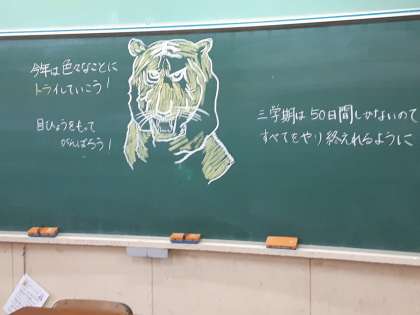 今年は色々なことに
トライしていこう!
目ひょうをもって
がんばろう!
三学期は50日間しかないので
すべてをやり終えれるように